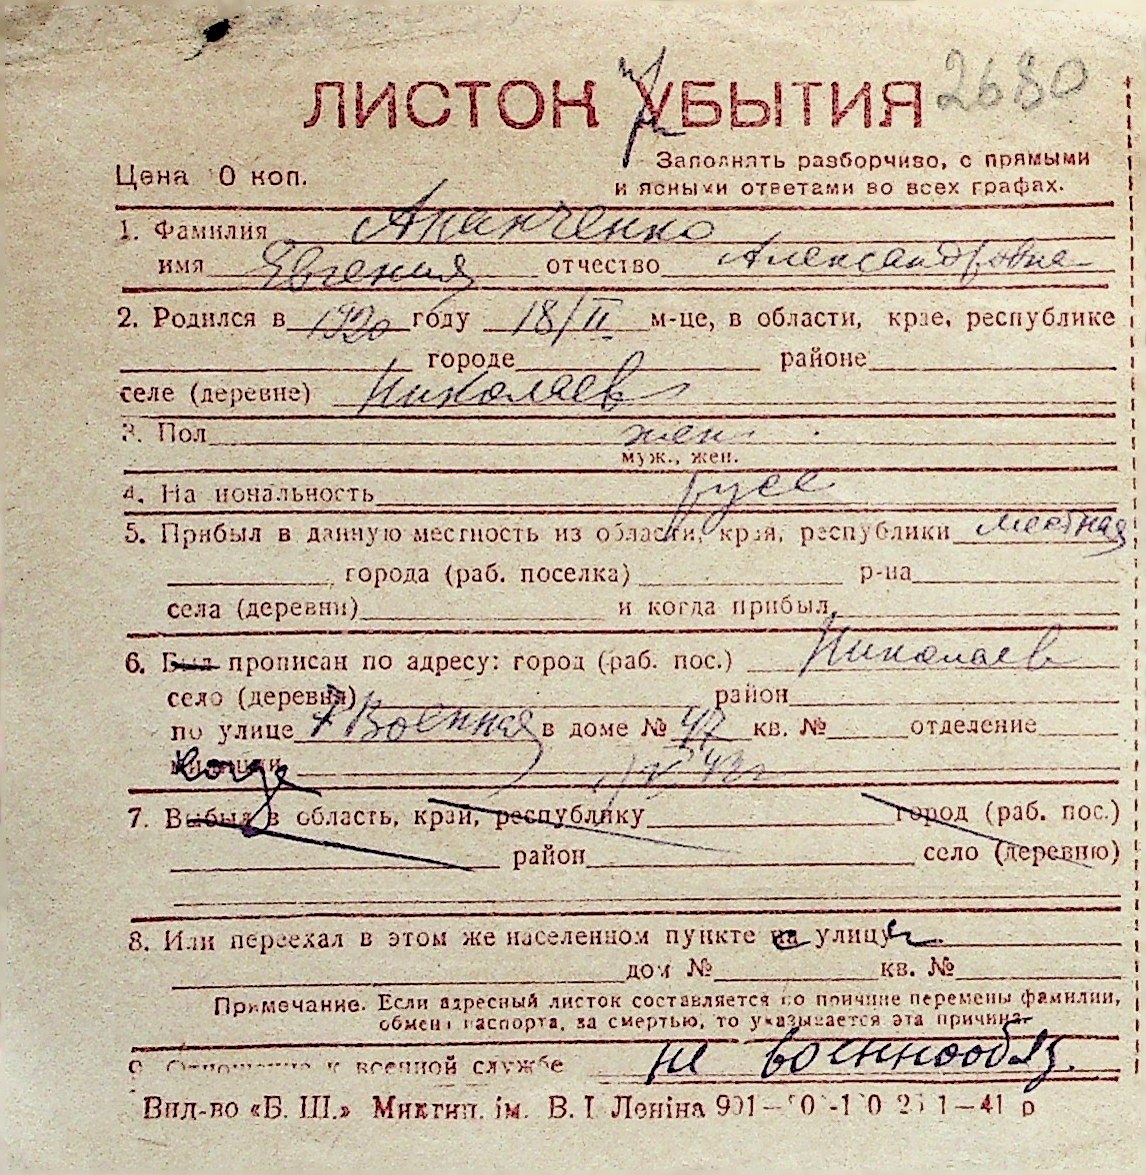 ЛИСТОН УБЫТИЯ 2680
Цена 0 коп.
Заполнять разборчиво, с прямыми
и ясными ответами во всех графах.
1. Фамилия Апанченко
имя Евгения отчество Александровна
2. Родился в 1920 году 18/II м-це, в области, крае, республике
городе районе
селе (деревне) Николаев
3. Пол жен.
муж., жен.
4. На иональность русс
5. Прибыл в данную местность из области, края, республики местная
города (раб. поселка) р-на
села (деревни) и когда прибыл
6. Был прописан по адресу: город (раб. пос.) Николаев
село (деревня) район
по улице Военная в доме № 47 кв. № отделение
когда
7. Выбыл в область, край, республику город (раб. пос.)
район село (деревню)
8. Или переехал в этом же населенном пункте с улицы
дом № кв. №
Примечание. Если адресный листок составляется по причине перемены фамилии,
обмен паспорта, за смертью, то указывается эта причина.
9. Отношение к военной службе не военнообяз.
Вид-во «Б. Ш.» Миктип. ім. В. І Леніна 991